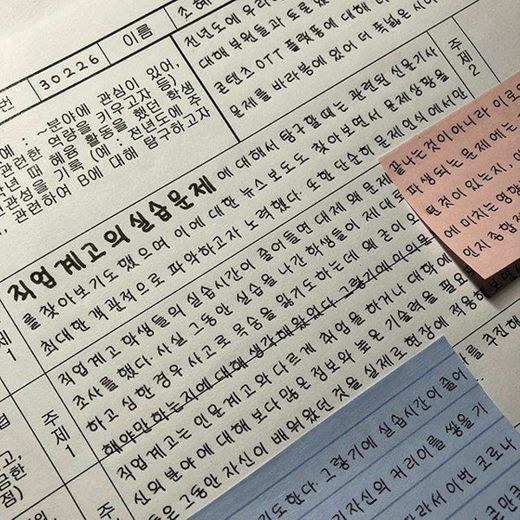 번
30226
이름
소혜
: ~분야에 관심이 있어,
관련한 역량을 키우고자 들
때 해움 활동을 했던 학생
관점을 기록 (예 : 전년도에 주
관련하여 B에 대해 탐구하고자
전년도에 우리
대해 부원들과 토론
콘텐츠 OTT 플랫폼에 대해
문제를 바라봄에 있어 더 폭넓은 시야
주제2
직업계고의 실습문제에 대해서 탐구할때는 관련된 신문기사
를 찾아보기도 했으며 이에 대한 뉴스 보도도 찾아보면서 문제상황을
최대한 객관적으로 파악하고자 노력했다. 또한 단순히 문제 인식에서만
주제1
직업계고 학생들의 실습시간이 줄어들면 대체 왜 문제
조사를 했다. 사실 그동안 실습을 나간 학생들이 제대로
하고 심한 경우 사고로 목숨을 잃기도하는데 왜 굳이
해야만 하는지에 대해 생각해왔었다. 그렇기에 의외
주제1
직업계고는 인문계고와 다르게 취업을 하거나 대학에
신의 분야에 대해 보다많은 정보와 높은 기술력을 필요
그동안 자신이 배워왔던 것을 실제로 현장에 적용하보면
를 추진해
끝나는것이 아니라 이로
파생되는 문제에는
떤것이 있는지,
에 미치는 영향
인지 종합적
기도 한다. 그렇기에 실습시간이 줄어
자신의 커리어를 쌓을 기
라서 이번 코로나
큰만큼